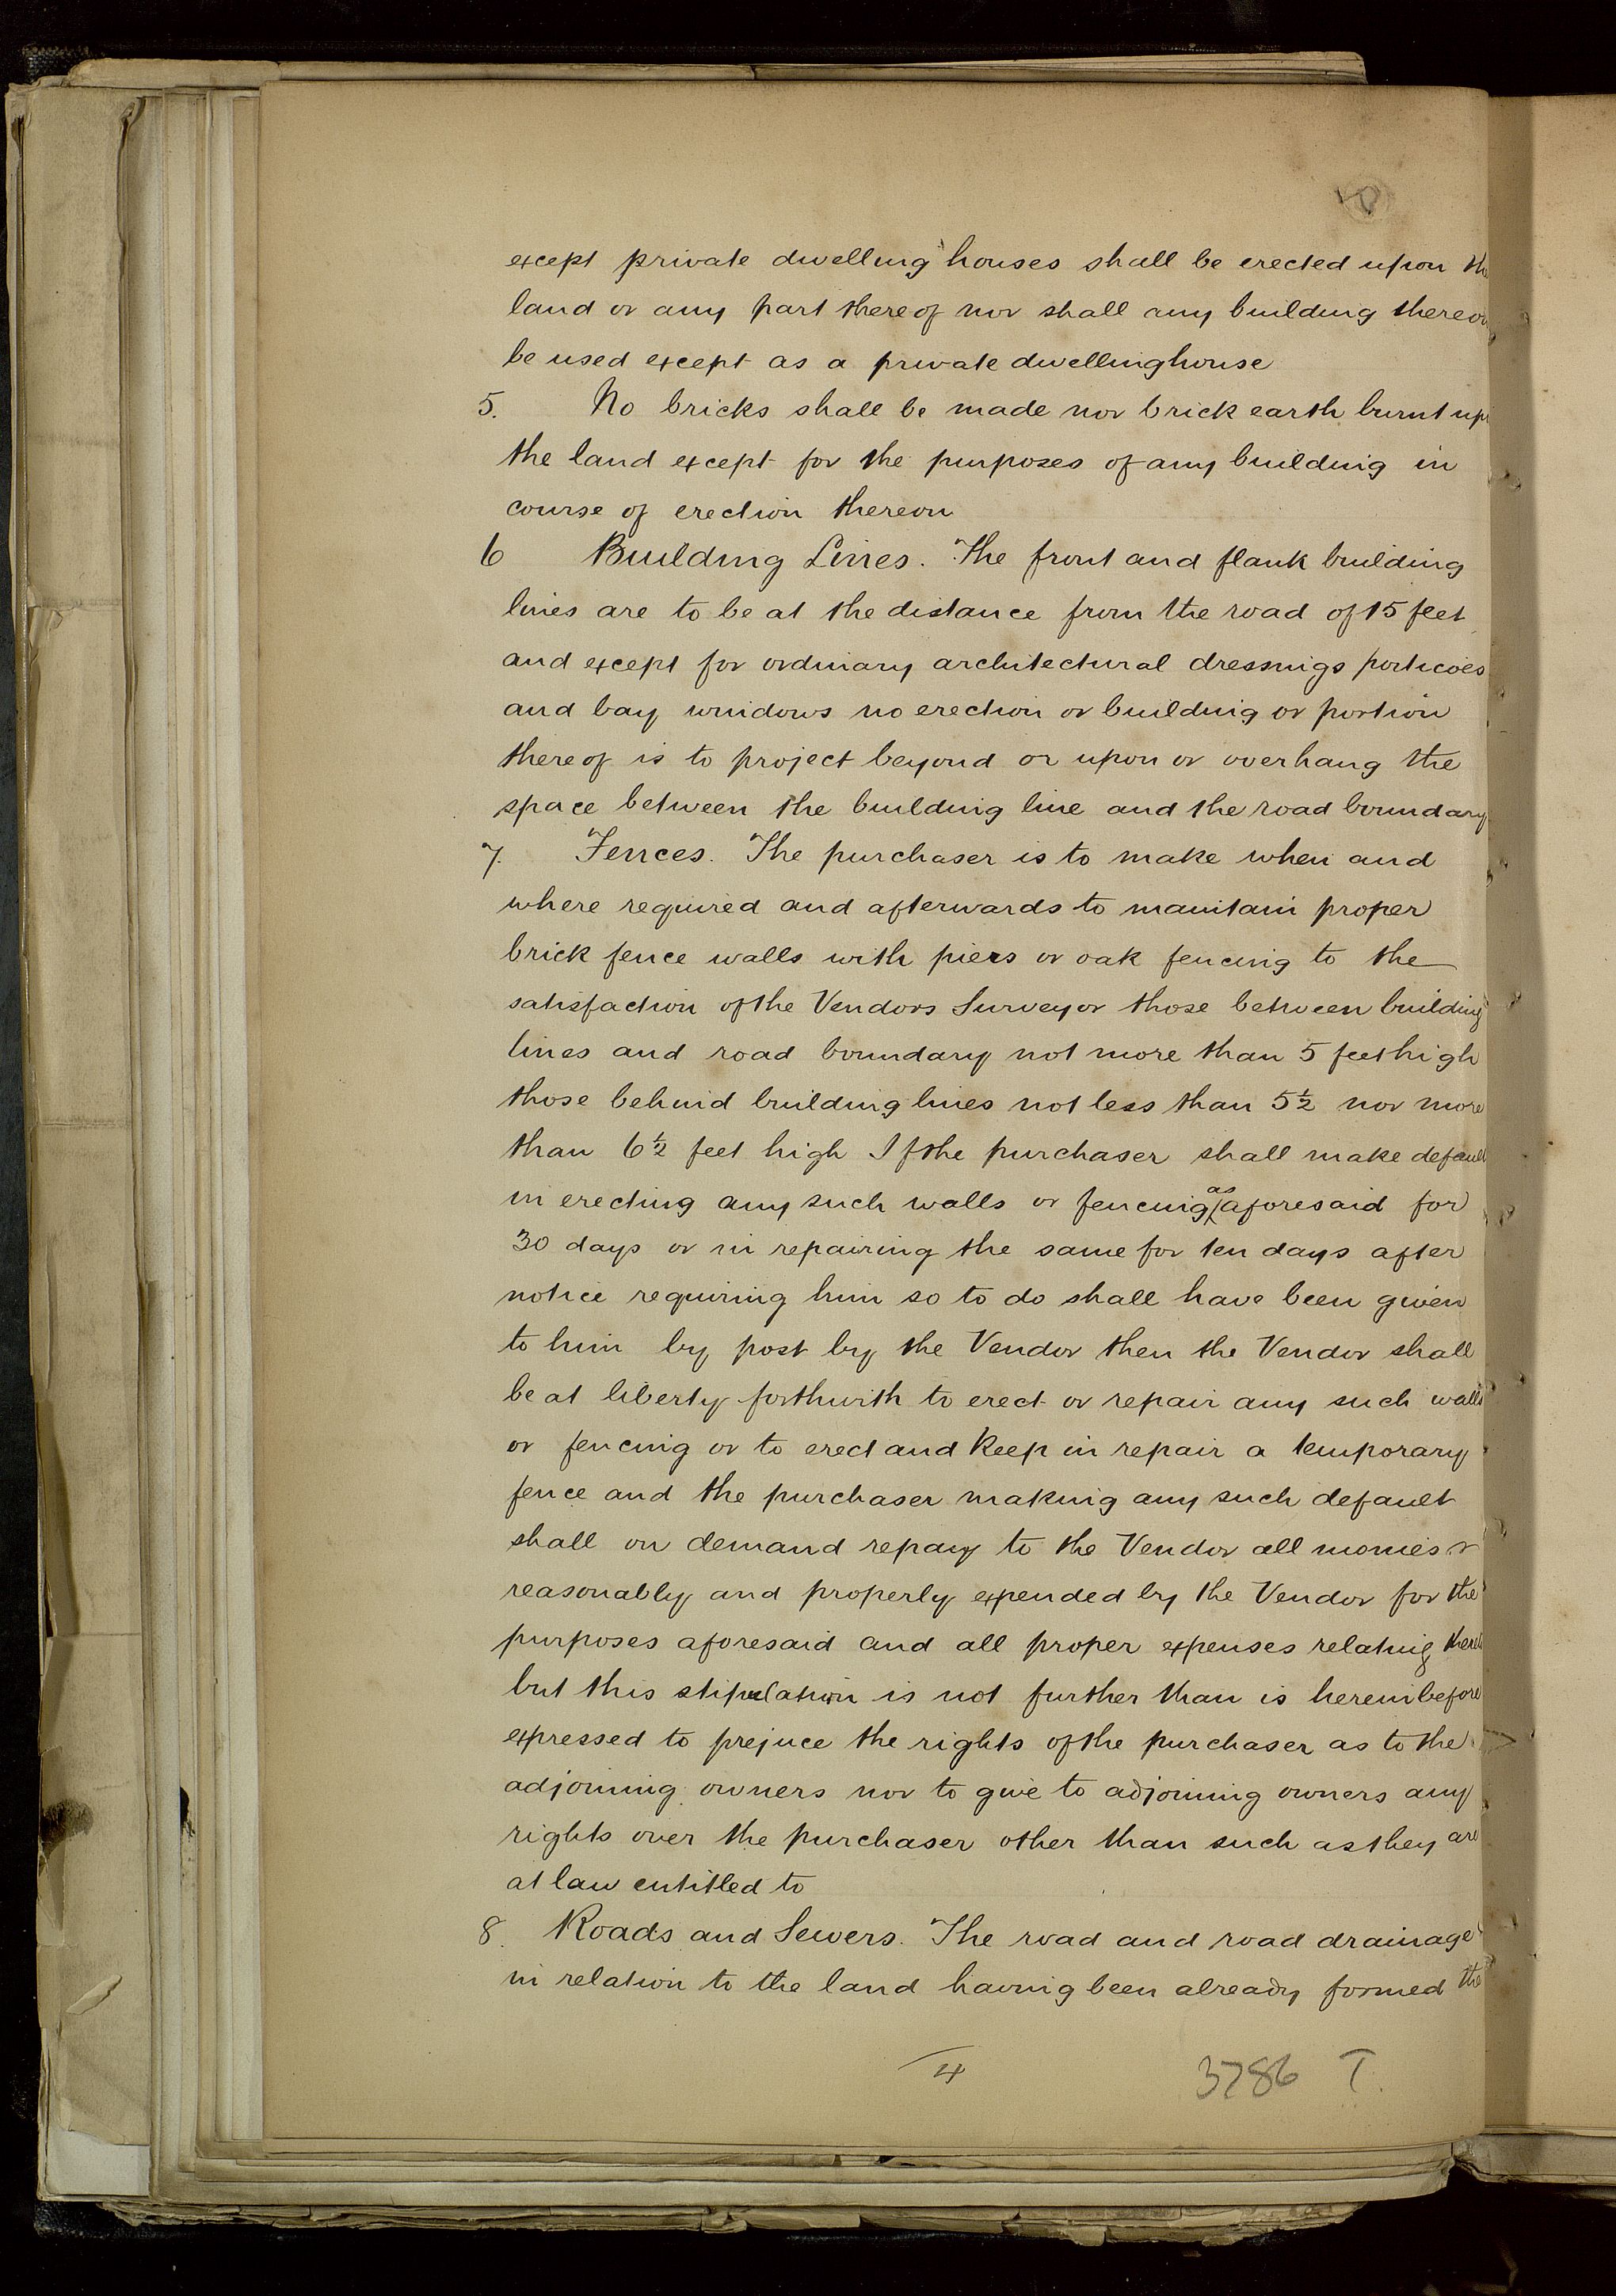 except private dwelling houses shall be erected upon the
land or any part thereof nor shall any building thereon
be used except as a private dwellinghouse
5. No bricks shall be made nor brick earth burnt up
the land except for the purposes of any building in
course of erection thereon
6 Building Lines. The front and flank building
lines are to be at the distance from the road of 15 feet
and except for ordinary architectural dressings porticoes
and bay windows no erection or building or portion
thereof is to project beyond or upon or overhang the
space between the building line and the road boundary
7. Fences. The purchaser is to make when and
where required and afterwards to maintain proper
brick fence walls with piers or oak fencing to the
satisfaction of the Vendors Surveyor those between building
lines and road boundary not more than 5 feet high
those behind building lines not less than 5½ nor more
than 6½ feet high If the purchaser shall make default
in erecting any such walls or fencing as aforesaid for
30 days or in repairing the same for ten days after
notice requiring him so to do shall have been given
to him by post by the Vendor then the Vendor shall
be at liberty forthwith to erect or repair any such walls
or fencing or to erect and keep in repair a temporary
fence and the purchaser making any such default
shall on demand repay to the Vendor all monies
reasonably and properly expended by the Vendor for the
purposes aforesaid and all proper expenses relating thereto
but this stipulation is not further than is hereinbefore
expressed to prejuce the rights of the purchaser as to the
adjoining owners nor to give to adjoining owners any
rights over the purchaser other than such as they are
at law entitled to
8. Roads and Sewers. The road and road drainage
in relation to the land having been already formed the
4
3786 T.